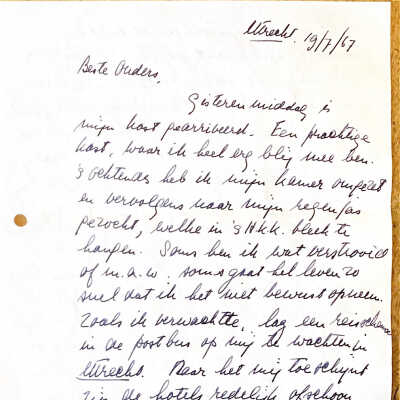 Utrecht. 19/7/67
Beste Ouders,
Gisterenmiddag is
mijn kast gearriveerd. Een prachtige
kast, waar ik heel erg blij mee ben.
's Ochtends heb ik mijn kamer omgezet
en vervolgens naar mijn regenjas
gezocht, welke in 's H.K.K. bleek te
hangen. Soms ben ik wat verstrooid
of m.a.w. soms gaat het leven zo
snel dat ik het niet bewust opneem.
Zoals ik verwachtte, lag een
in de postbus op mij te wachten in
Utrecht. Naar het mij toeschijnt
zijn de hotels redelijk ofschoon